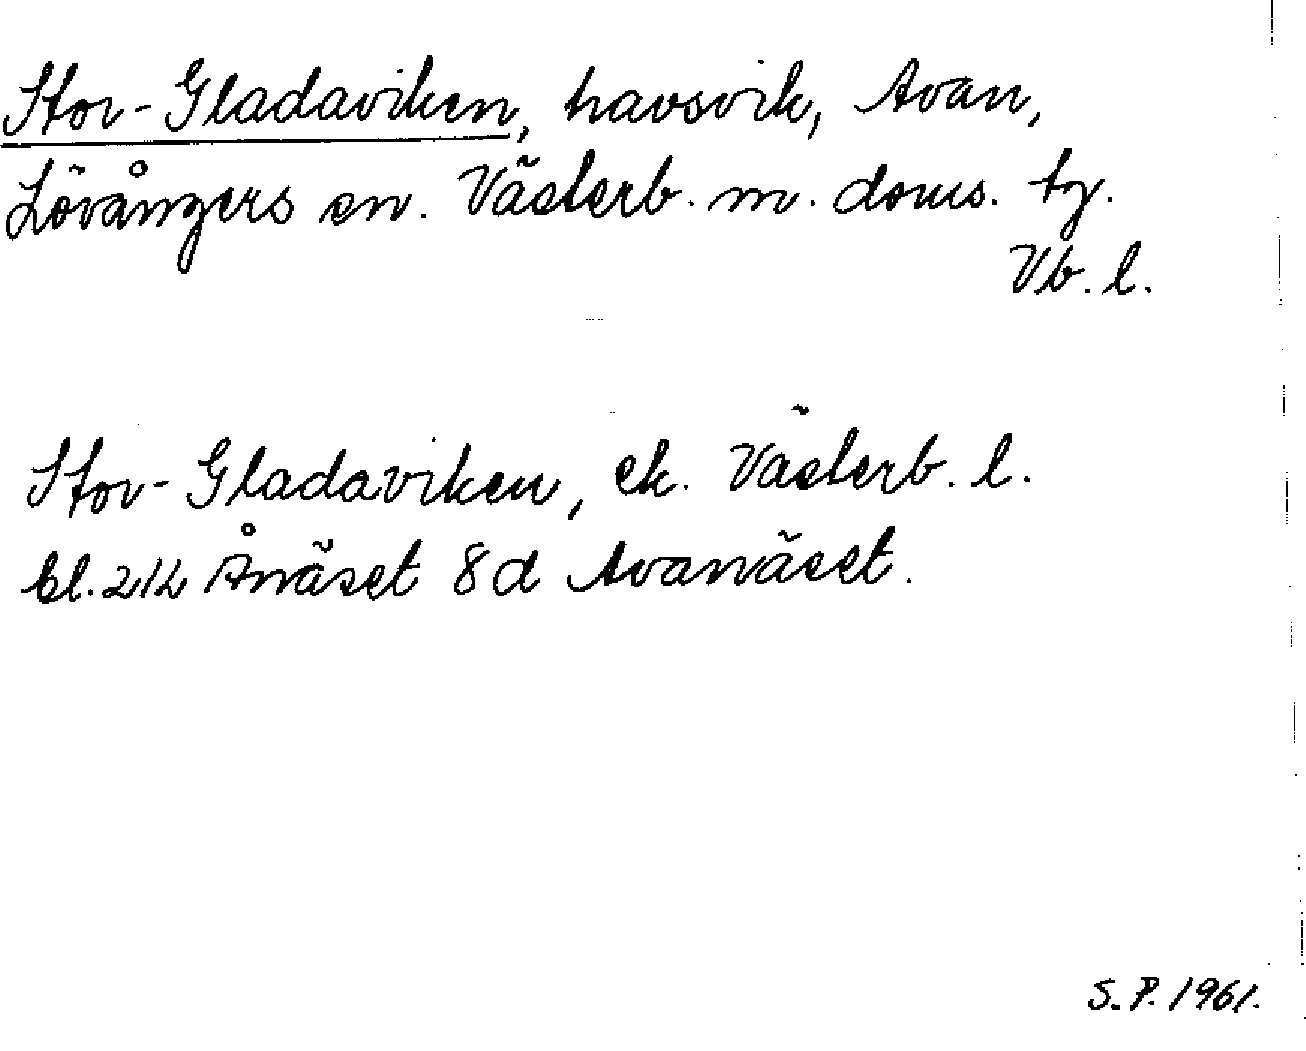 Stor-Gladaviken, havsvik, Avan,
Lövångers sn. Västerb. m. doms. tg.
Vb. l.
Stor-Gladaviken, ek. Västerb. l.
bl. 212 Ånäset 8d Avanäset.
S.P. 1961.